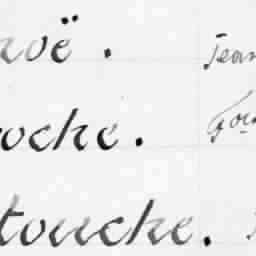 aoë. Jean
roche. Gou
touche.